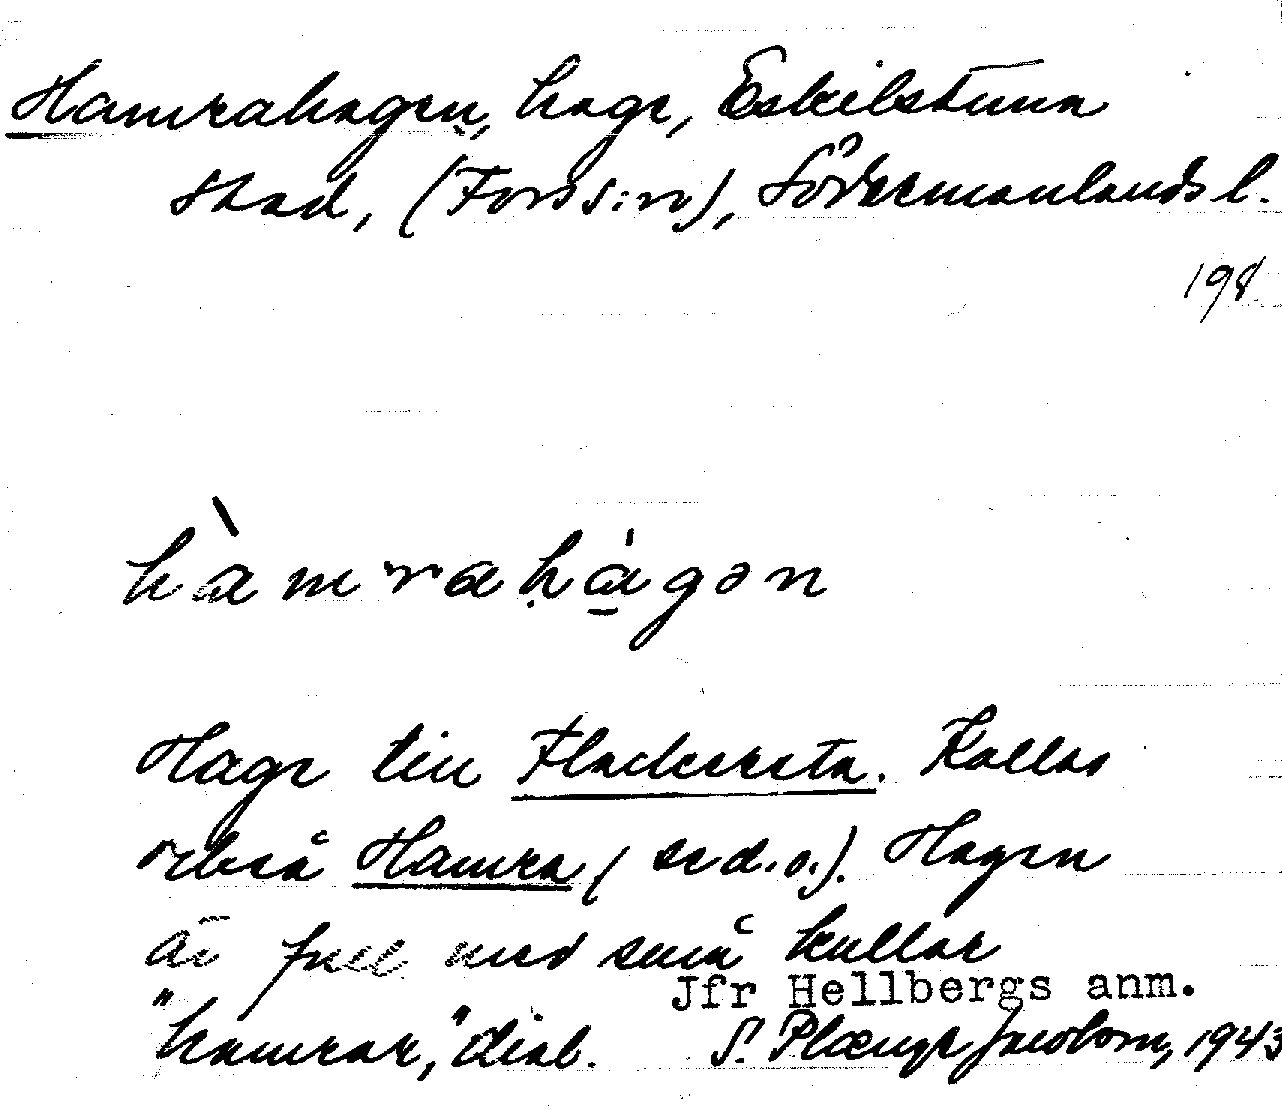 Hamrahagen, hage, Eskilstuna
stad, (Fors s:n), Södermanlands l.
198
hàmrahàgən
Hage till Flackersta. Kallas
också Hamra (se d.o.). Hagen
är full med små kullar
Jfr Hellbergs anm.
"hamrar," dial. S. Plænge Jacobson, 1943